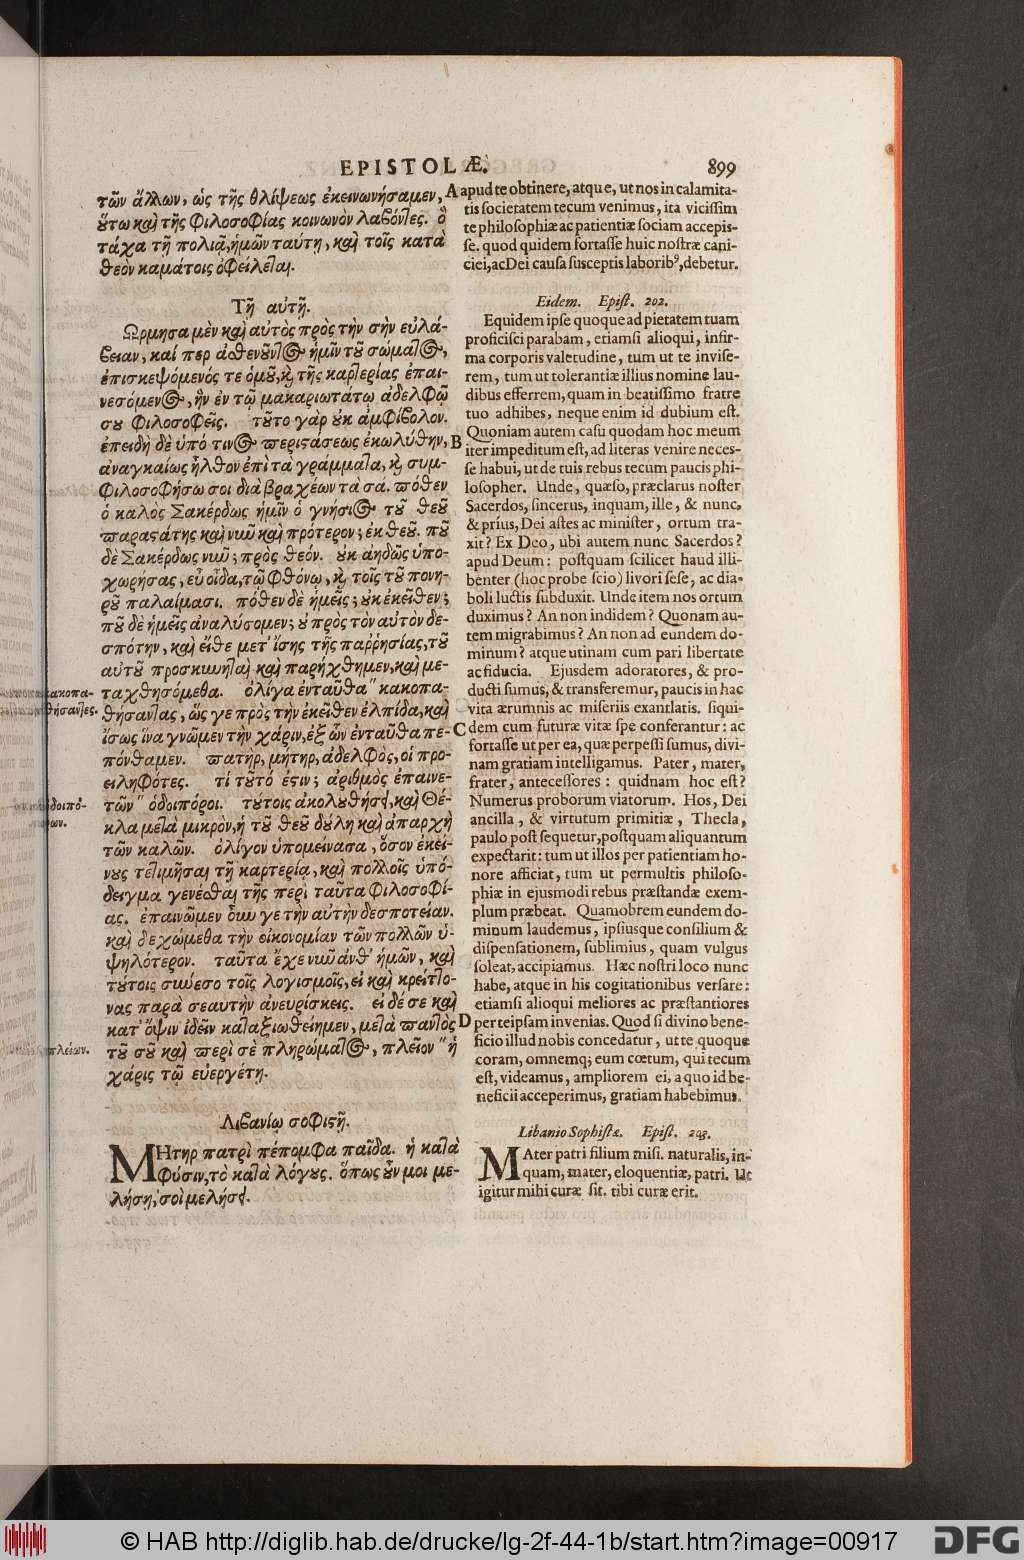 EPISTOLÆ.
899
τῶν ἄλλων, ὡς τῆς θλίψεως ἐκοινωνήσαμεν,
οὕτω καὶ τῆς φιλοσοφίας κοινωνὸν λαβόντες. ὃ
τάχα τῇ πολιᾷ ἡμῶν ταύτῃ, καὶ τοῖς κατὰ
θεὸν καμάτοις ὀφείλεται.
Τῇ αὐτῇ.
Ὥρμησα μὲν καὶ αὐτὸς πρὸς τὴν σὴν εὐλά-
βειαν, καί περ ἀσθενοῦντος ἡμῖν τοῦ σώματος,
ἐπισκεψόμενός τε ὁμοῦ, καὶ τῆς καρτερίας ἐπαι-
νεσόμενος, ἣν ἐν τῷ μακαριωτάτῳ ἀδελφῷ
σου φιλοσοφεῖς. τοῦτο γὰρ οὐκ ἀμφίβολον.
ἐπειδὴ δὲ ὑπό τινος περιστάσεως ἐκωλύθην,
ἀναγκαίως ἦλθον ἐπὶ τὰ γράμματα, καὶ συμ-
φιλοσοφήσω σοι διὰ βραχέων τὰ σά. πόθεν
ὁ καλὸς Σακέρδως ἡμῖν ὁ γνήσιος τοῦ θεοῦ
παραστάτης καὶ νῦν καὶ πρότερον; ἐκ θεοῦ. ποῦ
δὲ Σακέρδως νῦν; πρὸς θεόν. οὐκ ἀηδῶς ὑπο-
χωρήσας, εὖ οἶδα, τῷ φθόνῳ, καὶ τοῖς τοῦ πονη-
ροῦ παλαίμασι. πόθεν δὲ ἡμεῖς; οὐκ ἐκεῖθεν;
ποῦ δὲ ἡμεῖς ἀναλύσομεν; οὐ πρὸς τὸν αὐτὸν δε-
σπότην, καὶ εἴθε μετ' ἴσης τῆς παῤῥησίας, τοῦ
αὐτοῦ προσκυνηταὶ καὶ παρήχθημεν, καὶ με-
ταχθησόμεθα. ὀλίγα ἐνταῦθα " κακοπα-
θήσαντας, ὥς γε πρὸς τὴν ἐκεῖθεν ἐλπίδα, καὶ
ἴσως ἵνα γνῶμεν τὴν χάριν, ἐξ ὧν ἐνταῦθα πε-
πόνθαμεν. πατὴρ, μήτηρ, ἀδελφὸς, οἱ προ-
ειληφότες. τί τοῦτό ἐστιν; ἀριθμὸς ἐπαινε-
τῶν " ὁδοιπόροι. τούτοις ἀκολουθήσει, καὶ Θέ-
κλα μετὰ μικρὸν, ἡ τοῦ θεοῦ δούλη καὶ ἀπαρχὴ
τῶν καλῶν. ὀλίγον ὑπομείνασα, ὅσον ἐκεί-
νους τετιμῆσαι τῇ καρτερίᾳ, καὶ πολλοῖς ὑπό-
δειγμα γενέσθαι τῆς περὶ ταῦτα φιλοσοφί-
ας. ἐπαινῶμεν οὖν γε τὴν αὐτὴν δεσποτείαν.
καὶ δεχώμεθα τὴν οἰκονομίαν τῶν πολλῶν ὑ-
ψηλότερον. ταῦτα ἔχε νῦν ἀνθ' ἡμῶν, καὶ
τούτοις σύνεσο τοῖς λογισμοῖς, εἰ καὶ κρείττο-
νας παρὰ σεαυτὴν ἀνευρίσκεις. εἰ δέ σε καὶ
κατ' ὄψιν ἰδεῖν καταξιωθείημεν, μετὰ παντὸς
τοῦ σοῦ καὶ περὶ σὲ πληρώματος, πλεῖον " ἡ
χάρις τῷ εὐεργέτῃ.
Λιβανίῳ σοφιστῇ.
ΜΗτηρ πατρὶ πέπομφα παῖδα. ἡ κατὰ
φύσιν, τὸ κατὰ λόγους. ὅπως οὖν μοι με-
λήσῃ, σοὶ μελήσει.
κακοπα-
θήσαντες.
πλείων.
A apud te obtinere, atque, ut nos in calamita-
tis societatem tecum venimus, ita vicissim
te philosophiæ ac patientiæ sociam accepis-
se. quod quidem fortasse huic nostræ cani-
ciei, ac Dei causa susceptis laborib⁹, debetur.
Eidem. Epist. 202.
Equidem ipse quoque ad pietatem tuam
proficisci parabam, etiamsi alioqui, infir-
ma corporis valetudine, tum ut te invise-
rem, tum ut tolerantiæ illius nomine lau-
dibus efferrem, quam in beatissimo fratre
tuo adhibes, neque enim id dubium est.
Quoniam autem casu quodam hoc meum
B iter impeditum est, ad literas venire neces-
se habui, ut de tuis rebus tecum paucis phi-
losopher. Unde, quæso, præclarus noster
Sacerdos, sincerus, inquam, ille, & nunc,
& prius, Dei astes ac minister, ortum tra-
xit? Ex Deo, ubi autem nunc Sacerdos?
apud Deum: postquam scilicet haud illi-
benter (hoc probe scio) livori sese, ac dia-
boli luctis subduxit. Unde item nos ortum
duximus? An non indidem? Quonam au-
tem migrabimus? An non ad eundem do-
minum? atque utinam cum pari libertate
ac fiducia. Ejusdem adoratores, & pro-
ducti sumus, & transferemur, paucis in hac
vita ærumnis ac miseriis exantlatis. siqui-
C dem cum futuræ vitæ spe conferantur: ac
fortasse ut per ea, quæ perpessi sumus, divi-
nam gratiam intelligamus. Pater, mater,
frater, antecessores: quidnam hoc est?
Numerus proborum viatorum. Hos, Dei
ancilla, & virtutum primitiæ, Thecla,
paulo post sequetur, postquam aliquantum
expectarit: tum ut illos per patientiam ho-
nore afficiat, tum ut permultis philoso-
phiæ in ejusmodi rebus præstandæ exem-
plum præbeat. Quamobrem eundem do-
minum laudemus, ipsiusque consilium &
dispensationem, sublimius, quam vulgus
soleat, accipiamus. Hæc nostri loco nunc
habe, atque in his cogitationibus versare:
etiamsi alioqui meliores ac præstantiores
D per teipsam invenias. Quod si divino bene-
ficio illud nobis concedatur, ut te quoque
coram, omnemq; eum cœtum, qui tecum
est, videamus, ampliorem ei, a quo id be-
neficii acceperimus, gratiam habebimus.
Libanio Sophistæ. Epist. 203.
MAter patri filium misi. naturalis, in-
quam, mater, eloquentiæ, patri. Ut
igitur mihi curæ sit. tibi curæ erit.
© HAB http://diglib.hab.de/drucke/lg-2f-44-1b/start.htm?image=00917
DFG